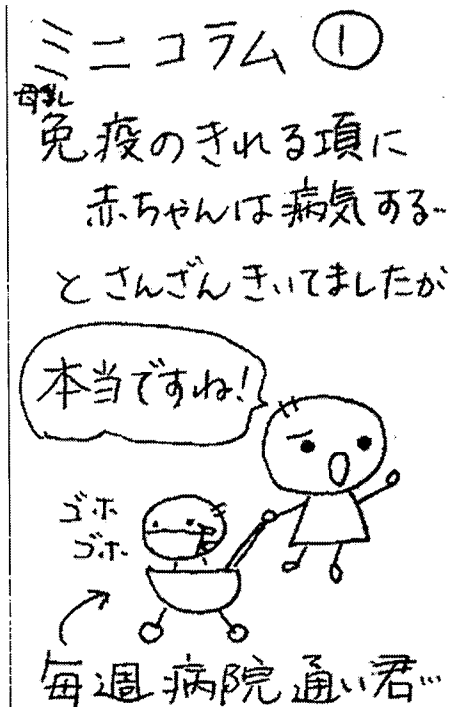 ミニコラム①
母乳
免疫のきれる項に
赤ちゃんは病気する…
とさんざんきいてましたが
本当ですね!
ゴホ
ゴホ
毎週病院通い君…